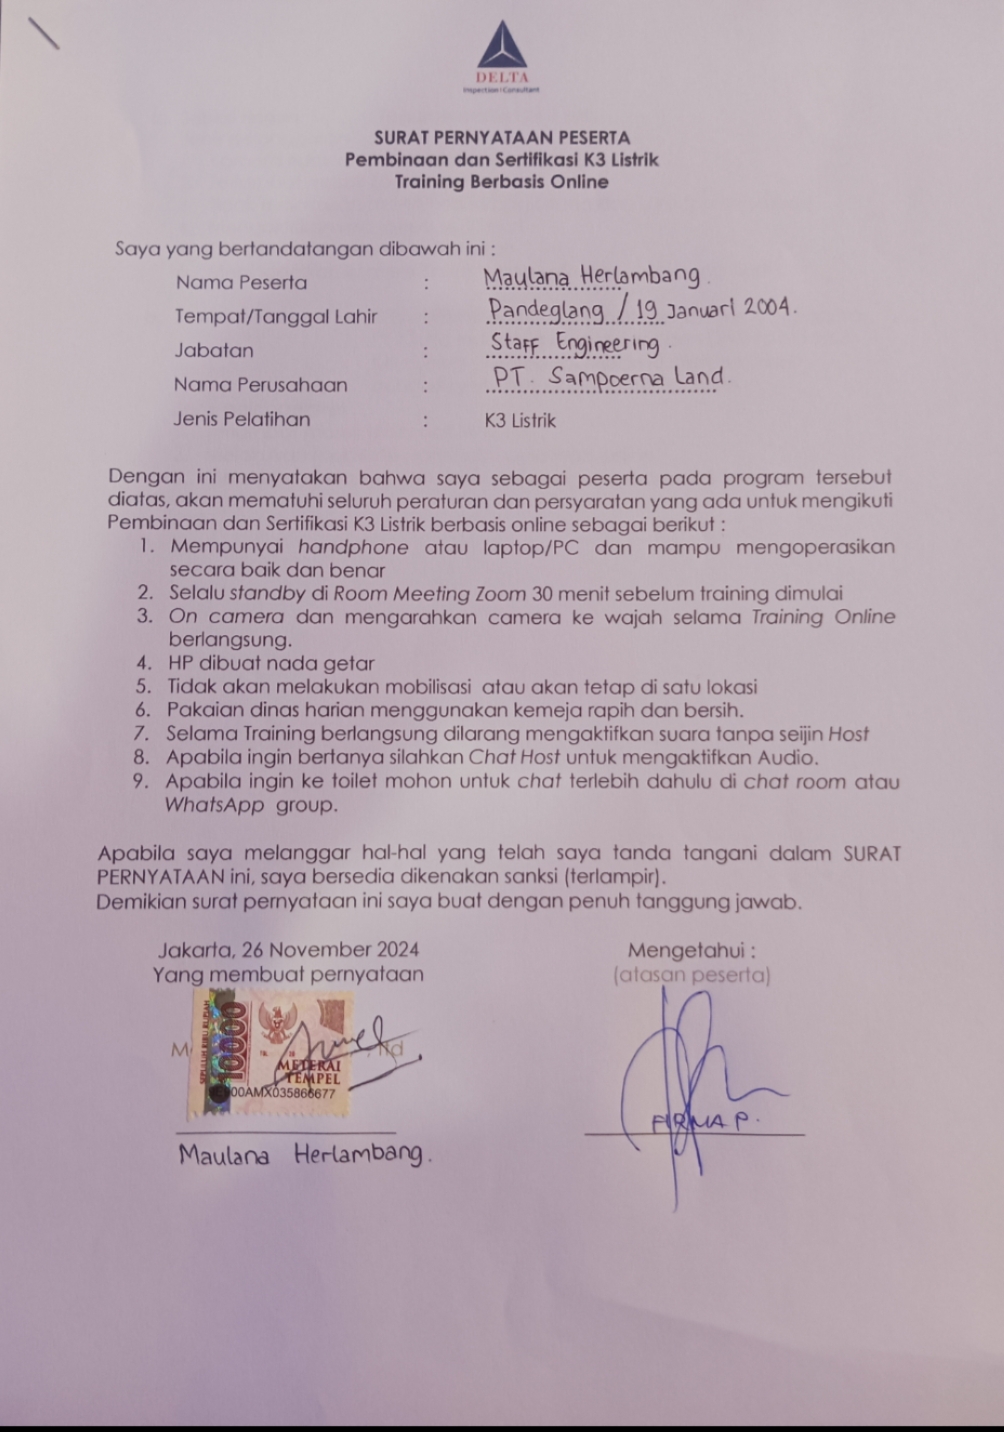 DELTA
Inspection | Consultant
SURAT PERNYATAAN PESERTA
Pembinaan dan Sertifikasi K3 Listrik
Training Berbasis Online
Saya yang bertandatangan dibawah ini :
Nama Peserta : Maulana Herlambang.
Tempat/Tanggal Lahir : Pandeglang / 19 Januari 2004.
Jabatan : Staff Engineering.
Nama Perusahaan : PT. Sampoerna Land.
Jenis Pelatihan : K3 Listrik
Dengan ini menyatakan bahwa saya sebagai peserta pada program tersebut
diatas, akan mematuhi seluruh peraturan dan persyaratan yang ada untuk mengikuti
Pembinaan dan Sertifikasi K3 Listrik berbasis online sebagai berikut :
1. Mempunyai handphone atau laptop/PC dan mampu mengoperasikan
secara baik dan benar
2. Selalu standby di Room Meeting Zoom 30 menit sebelum training dimulai
3. On camera dan mengarahkan camera ke wajah selama Training Online
berlangsung.
4. HP dibuat nada getar
5. Tidak akan melakukan mobilisasi atau akan tetap di satu lokasi
6. Pakaian dinas harian menggunakan kemeja rapih dan bersih.
7. Selama Training berlangsung dilarang mengaktifkan suara tanpa seijin Host
8. Apabila ingin bertanya silahkan Chat Host untuk mengaktifkan Audio.
9. Apabila ingin ke toilet mohon untuk chat terlebih dahulu di chat room atau
WhatsApp group.
Apabila saya melanggar hal-hal yang telah saya tanda tangani dalam SURAT
PERNYATAAN ini, saya bersedia dikenakan sanksi (terlampir).
Demikian surat pernyataan ini saya buat dengan penuh tanggung jawab.
Jakarta, 26 November 2024 Mengetahui :
Yang membuat pernyataan (atasan peserta)
SEPULUH RIBU RUPIAH
10000
METERAI
TEMPEL
00AMX035866677
Maulana Herlambang.